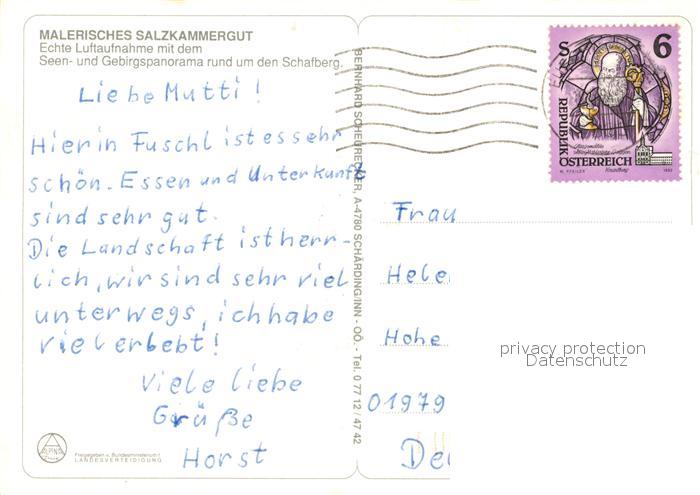 MALERISCHES SALZKAMMERGUT
Echte Luftaufnahme mit dem
Seen- und Gebirgspanorama rund um den Schafberg.
Liebe Mutti!
Hier in Fuschl ist es sehr
schön. Essen und Unterkunft
sind sehr gut.
Die Landschaft ist herr-
lich, wir sind sehr viel
unterwegs, ich habe
viel erlebt!
Viele liebe
Grüße
Horst
Freigegeben v. Bundesministerium f.
LANDESVERTEIDIGUNG
BERNHARD SCHEURECKER, A-4780 SCHÄRDING/INN - OÖ. - Tel. 0 77 12 / 47 42
S 6
REPUBLIK
ÖSTERREICH
Frau
Hele
Hohe
01979
De
privacy protection
Datenschutz